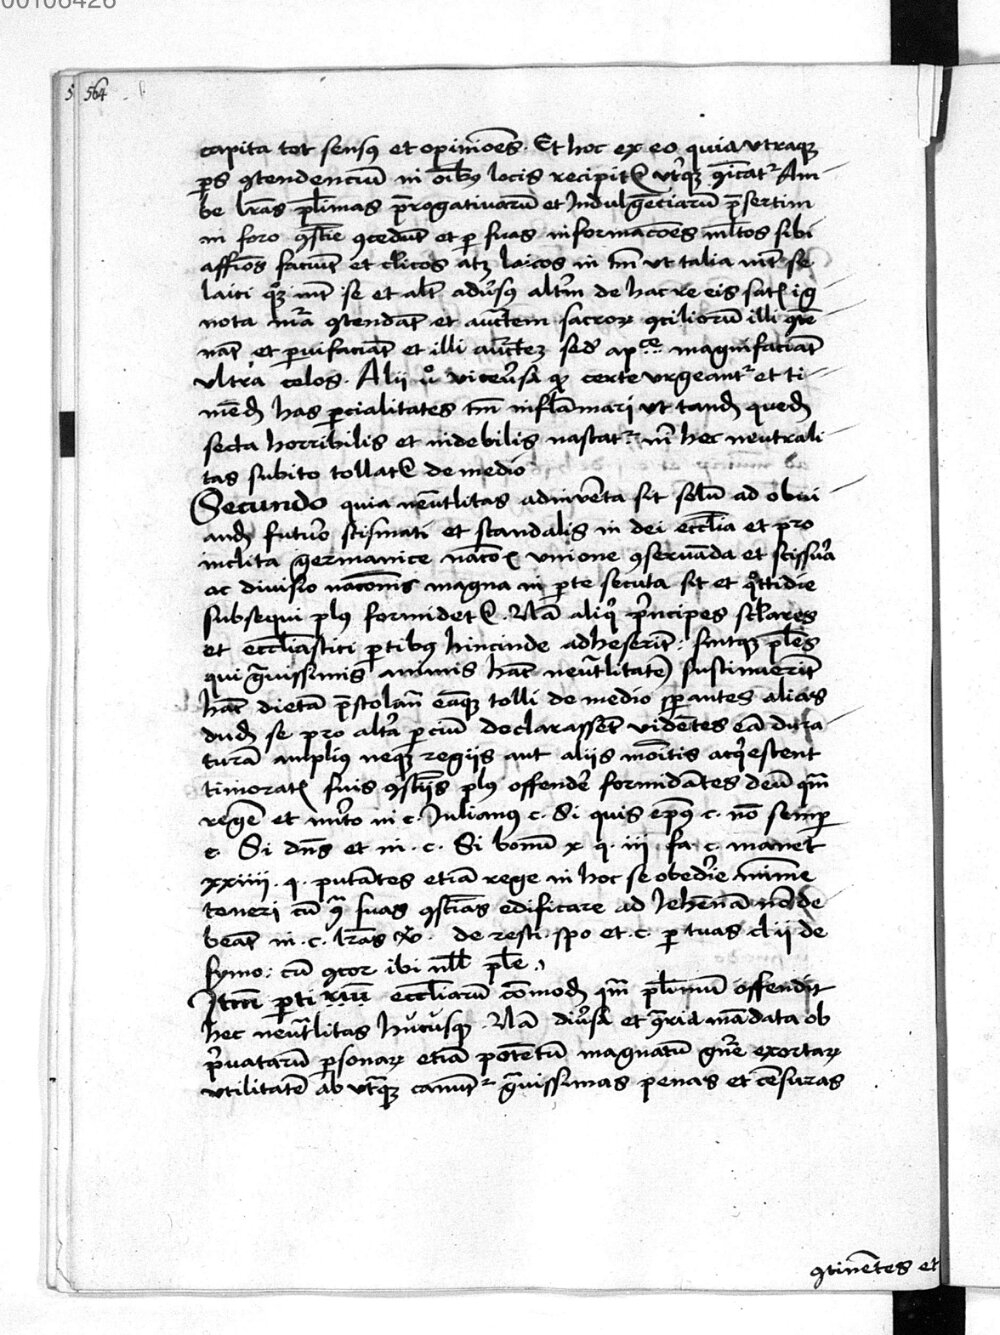 00106426
5 564
capita tot sensꝯ et opinio̅es. Et hoc ex eo quia vtraqꝫ
p̲s ꝯtendenciu̅ in o̅ibꝫ locis recipit᷑ vt̓qꝫ ꝯ̅icat᷑ Am
be l̅ras pl̅imas p̅rogatiuaru̅ et Indulge̅ciaru̅ p̅sertim
in foro ꝯs̅cie ꝯcedu̅t et ꝑ suas informaco̅es ml̅tos sibi
affi̅os faciu̅t et cl̅icos atqꝫ laicos in tm̅ vt talia int̅ se
laici qꝫ int̅ se et alt̅ adu̓sꝯ alt̓m de hac re eis sat᷑ ig
nota ꝯtenda̅t et auct̅em sacroꝝ ꝯciliorꝫ illi ꝯte̅
na̅t et ꝑuifacia̅t et illi auct̅eꝫ sed̓ ap̅ce magnifacia̅t
vltra celos. Alii v̊ vice̓usa qꝫ certe vrgeant᷑ et ti
me̅d̓ has ꝑcialitates tm̅ infla̅mari vt tand̓ qued̓
secta horribilis et indebilis nascat᷑ ni̅ hec neutrali
tas subito tollat᷑ de medio
Secundo quia neut̅litas adinue̅ta sit solu̅ ad obui
and̓ futu̓o scismati et scandalis in dei eccl̅ia et pro
inclita germanice naco̅᷑ vnione ꝯserua̅da et scissu̓a
ac diuisio naco̅nis magna in ꝑte secuta sit et q̊ttidie
subsequi plꝯ formidet᷑. Na̅ aliq̓ p̓ncipes sc̅lares
et eccl̅iastici ꝑtibꝯ hincinde adheseri̅t. su̅tqꝫ pl̅es
qui g̅uissimis animis ha̅c neut̅litate̅ sustinueri̅t
ha̅c dieta̅ p̅stolan̅ ea̅qꝫ tolli de medio sꝑantes alias
dud̓ se pro alt̓a ꝑciu̅ declarassent vide̅tes ea̅ dura
tura̅ amplius neqꝫ regiis aut aliis mo̅itis acq̓escent
timorat᷑ suis ꝯsc̅iis plꝯ offendē formida̅tes deu̅ qm̅
rege̅ et m̓ito in c. Julianus c. Si quis ep̅ꝯ c. no̅ semꝑ
c. Si dn̅s et in. c. Si bonu̅ x̅ꝫ q. iii. fa. c. manet
xxiiii. q. puta̅tes etia̅ rege in hoc se obed̓ie mi̅ime
teneri cu̅ suas ꝯsc̅ias edificare ad Jehenna̅ no̅ de
bea̅t in. c. l̅ras de resti. spo et. c. ꝑ tuas el ii de
symo: cu̅ ꝯcor ibi nll̅ pl̅e
Ite̅m ꝑti eccl̅iaru̅ co̅mod̓ qm̅ pl̅imu̅ offendit
hec neut̅litas hucusqꝫ. Na̅ diu̓sa et ꝯ̅ria ma̅data ob
p̓uataru̅ ꝑsonaꝝ etia̅ pote̅tu̅ magnatu̅ gn̅re exortaꝝ
vtilitate̅ ab vt̅qꝫ canu̅t᷑ g̅uissimas penas et ce̅suras
ꝯtine̅tes et